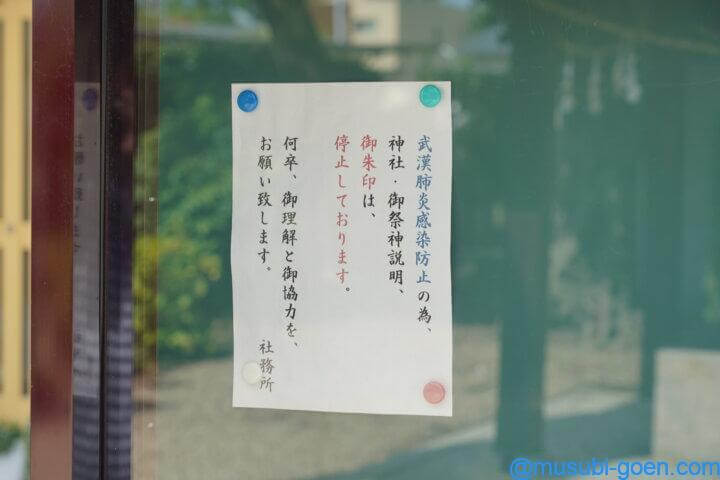 武漢肺炎感染防止の為、
神社・御祭神説明、
御朱印は、
停止しております。
何卒、御理解と御協力を、
お願い致します。
社務所
@musubi-goen.com